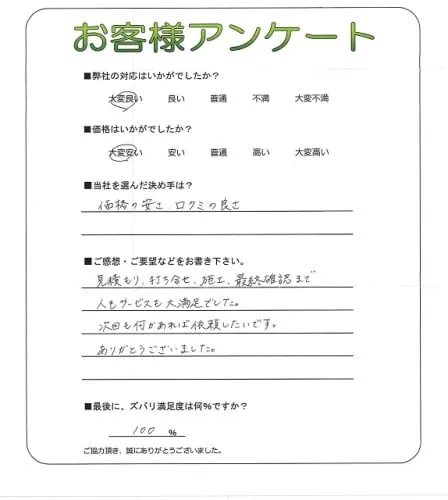 お客様アンケート
■弊社の対応はいかがでしたか？
大変良い 良い 普通 不満 大変不満
■価格はいかがでしたか？
大変安い 安い 普通 高い 大変高い
■当社を選んだ決め手は？
価格の安さ、口クミの良さ
■ご感想・ご要望などをお書き下さい。
見積もり、打ち合せ、施工、最終確認まで
人もサービスも大満足でした。
次回も何かあれば依頼したいです。
ありがとうございました。
■最後に、ズバリ満足度は何%ですか？
100 %
ご協力頂き、誠にありがとうございました。